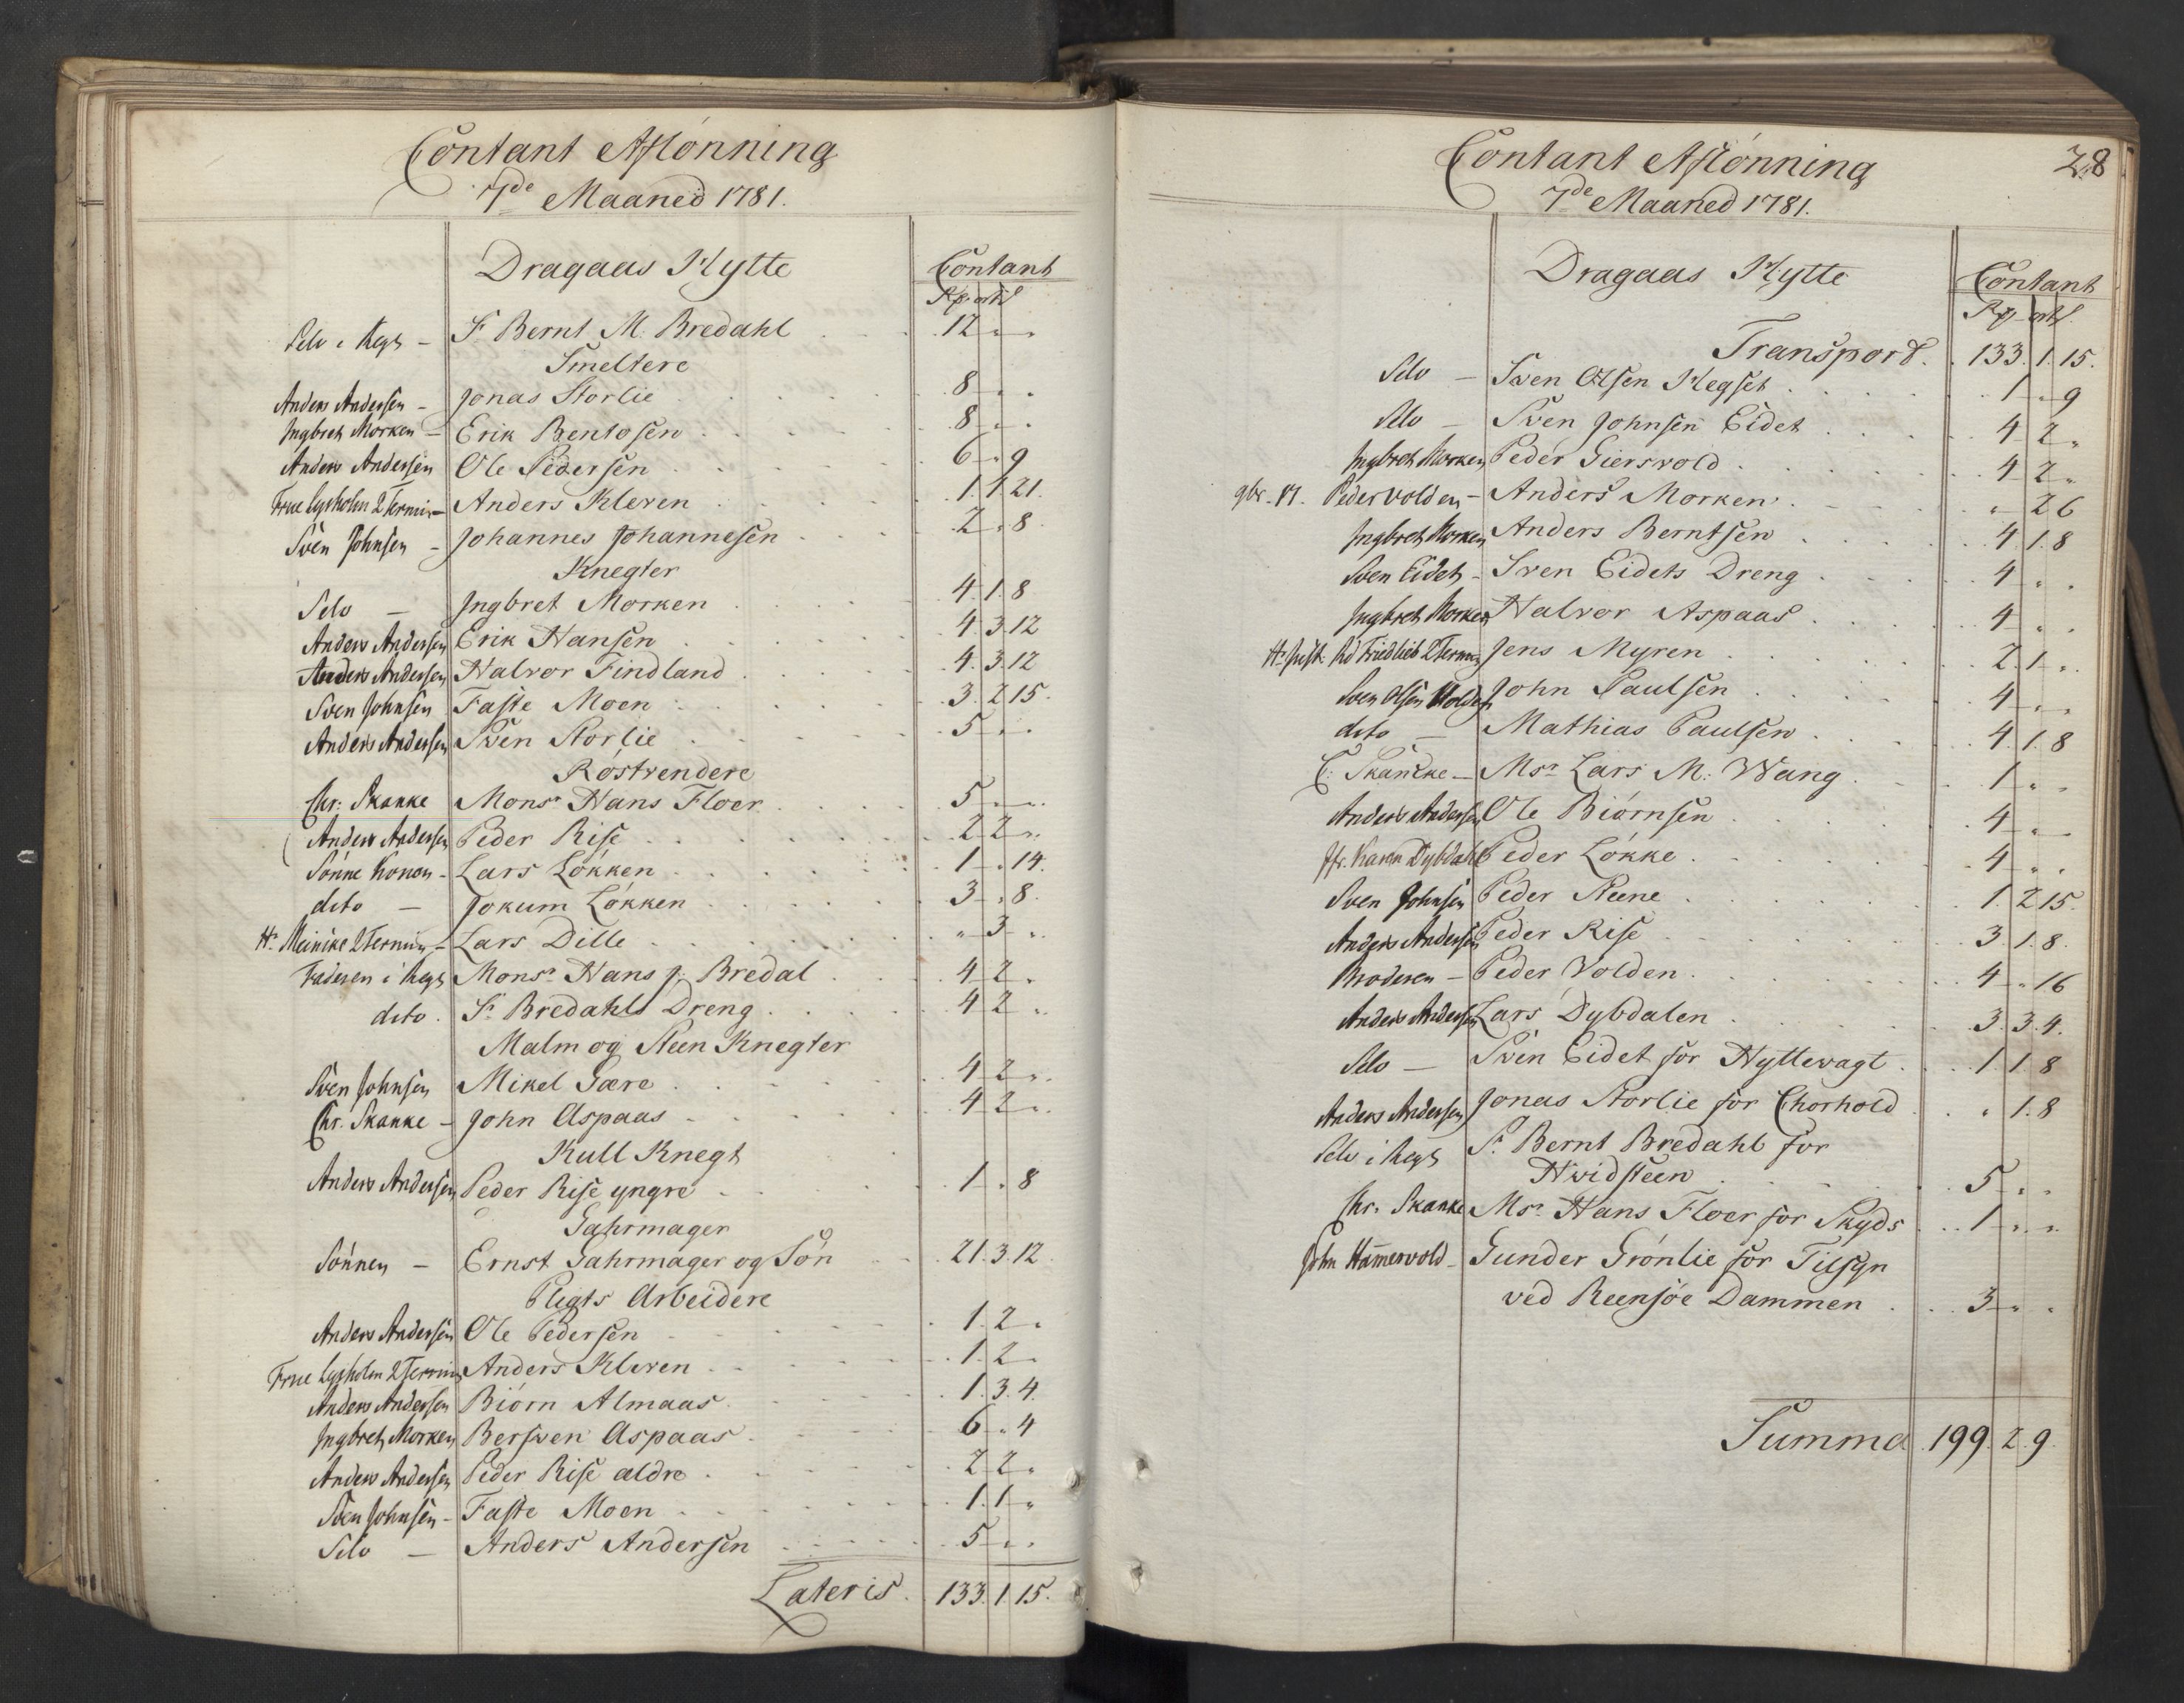 Contant Aflönning
7de Maaned 1781.
Dragaas Hytte Contant
Rp ort s
Selv i Regn – Sr Bernt M. Bredahl 12 " "
Smeltere
Anders Andersen – Jonas Storlie 8 " "
Ingbret Morken – Erik Bentosen 8 " "
Anders Andersen Ole Pedersen 6 " 9
Frue Lysholm 2 Termin – Anders Kleven 1. 1 21.
Sven Johnsen – Johannes Johannesen 2 " 8
Knegter
Selv – Ingbret Morken 4. 1. 8
Anders Andersen Erik Hansen 4. 3. 12
Anders Andersen Halvor Findland 4. 3. 12
Sven Johnsen Faste Moen 3. 2 15.
Anders Andersen Sven Storlie 5 " "
Rostvendere
Chr: Skanke Monsr Hans Floer 5 " "
Anders Andersen Peder Rise 2 2 "
Sönne Konen – Lars Lökken 1 " 14.
dito – Jokum Lökken 3 " 8.
Hr Meincke 2 Termin – Lars Dille " 3 "
Faderen i Regn Monsr Hans J: Bredal 4 2 "
dito. Sr Bredahls Dreng 4 2 "
Malm og Steen Knegter
Sven Johnsen Mikel Gære 4 2 "
Chr. Skanke – John Aspaas 4 2 "
Kull Knegt
Anders Andersen Peder Rise yngre 1 " 8
Gahrmager
Sönnen – Ernst Gahrmager og Sön 21. 3. 12
Pligts Arbeidere
Anders Andersen Ole Pedersen 1. 2 "
Frue Lysholm 2 Termin Anders Kleven 1. 2 "
Anders Andersen Biörn Almaas 1. 3. 4.
Ingbret Morken Berswen Aspaas 6 " 4
Anders Andersen Peder Rise ældre 2 2 "
Sven Johnsen – Faste Moen 1. 1 "
Selv – Anders Andersen 5 " "
Lateris. 133. 1. 15.
Contant Aflönning 28
7de Maaned 1781.
Dragaas Hytte Contant
Rp ort s
Transport. 133. 1. 15.
Selv – Sven Olsen Hegset 1 " 9
Selv – Sven Johnsen Eidet 4 2 "
Ingbret Morken Peder Gierswold 4 2 "
9br. 17. Peder Volden – Anders Morken " 2 6
Ingbret Morken Anders Berntsen 4. 1. 8
Sven Eidet – Sven Eidets Dreng 4 " "
Ingbret Morken Halvor Aspaas 4 " "
Hr Just. Rd Friedlieb 2 Termin Jens Myren 2. 1 "
Sven Olsen Holden John Paulsen 4 " "
dito – Mathias Paulsen 4. 1. 8
C: Skancke – Msr Lars M: Wang 1 " "
Anders Andersen Ole Biörnsen 4 " "
Jfr. Karen Dybdahl Peder Lökke 4 " "
Sven Johnsen Peder Steene 1 2 15.
Anders Andersen Peder Rise 3. 1. 8.
Broderen – Peder Volden 4 " 16
Anders Andersen Lars Dybdalen 3. 3. 4.
Selv – Sven Eidet for Hyttevagt 1. 1. 8
Anders Andersen Jonas Storlie for Chorhold " 1. 8
Selv i Regn Sr Bernt Bredahl for
Hvidsteen 5 " "
Chr. Skanke Msr Hans Floer for Skyds 1 " "
John Hamervold – Gunder Grönlie for Tilsyn
ved Reensjöe Dammen 3 " "
Summa 199. 2. 9.